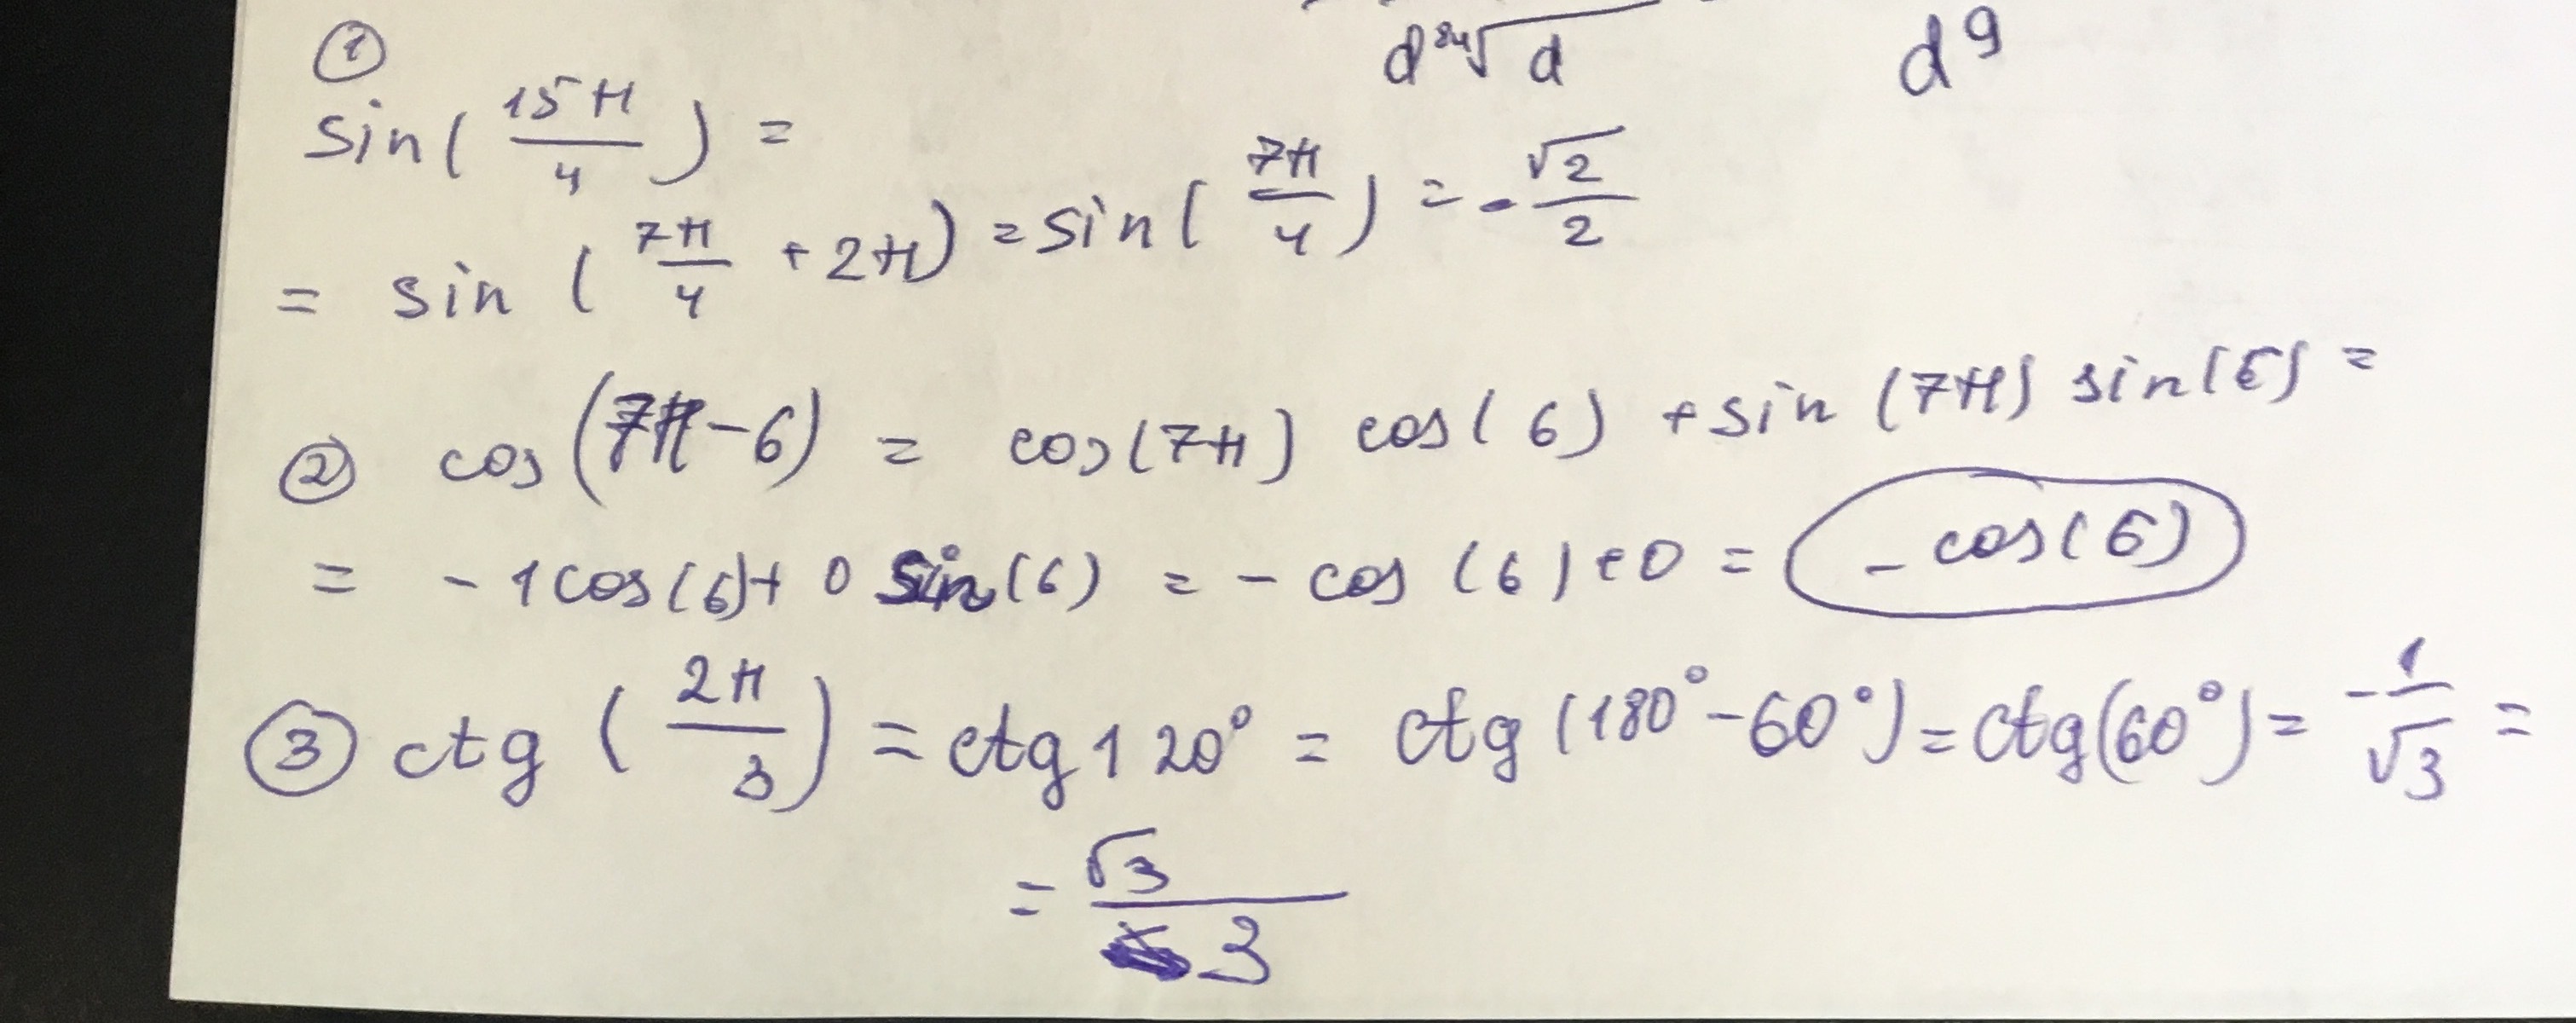 d ²⁴√d d⁹
①
sin(15π/4) =
= sin (7π/4 + 2π) = sin(7π/4) = -√2/2
② cos(7π-6) = cos(7π) cos(6) + sin(7π) sin(6) =
= -1cos(6)+ 0 sin(6) = - cos (6)+0 = -cos(6)
③ ctg (2π/3) = ctg 120° = ctg (180°-60°) = ctg(60°) = -1/√3 =
= √3/3